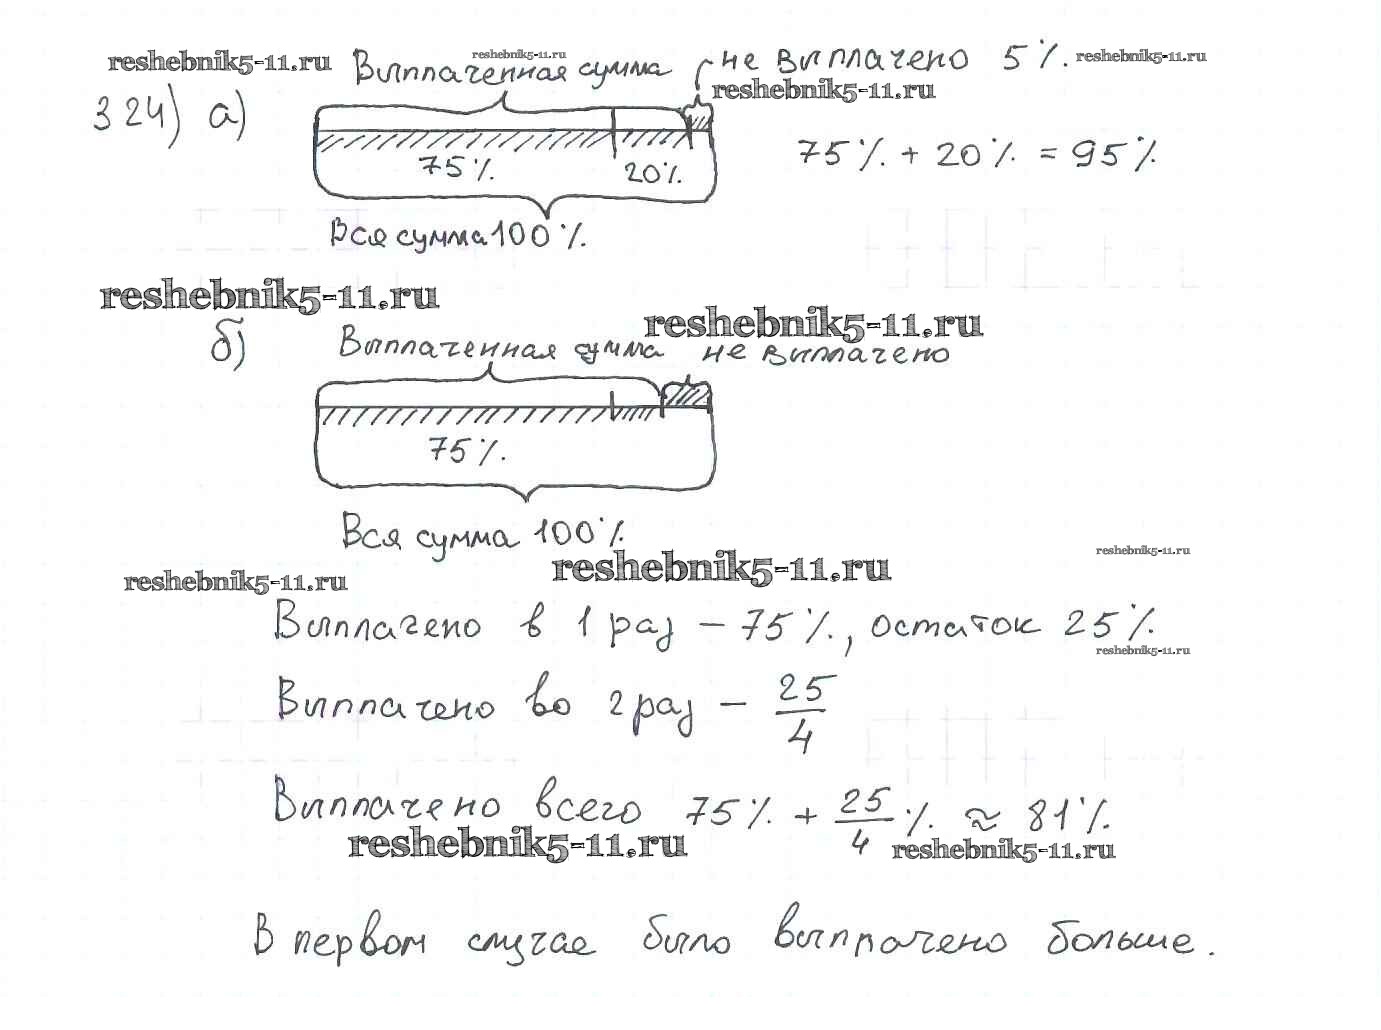 reshebnik5-11.ru
Выплаченная сумма
reshebnik5-11.ru
не выплачено 5%.
reshebnik5-11.ru
reshebnik5-11.ru
324) а)
75%
20%
75% + 20% = 95%
Вся сумма 100%
reshebnik5-11.ru
reshebnik5-11.ru
б)
Выплаченная сумма не выплачено
75%
Вся сумма 100%
reshebnik5-11.ru
reshebnik5-11.ru
reshebnik5-11.ru
Выплачено в 1 раз - 75%, остаток 25%
reshebnik5-11.ru
Выплачено во 2 раз - 25/4
Выплачено всего 75% + 25/4 % ≈ 81%
reshebnik5-11.ru
reshebnik5-11.ru
В первом случае было выплачено больше.